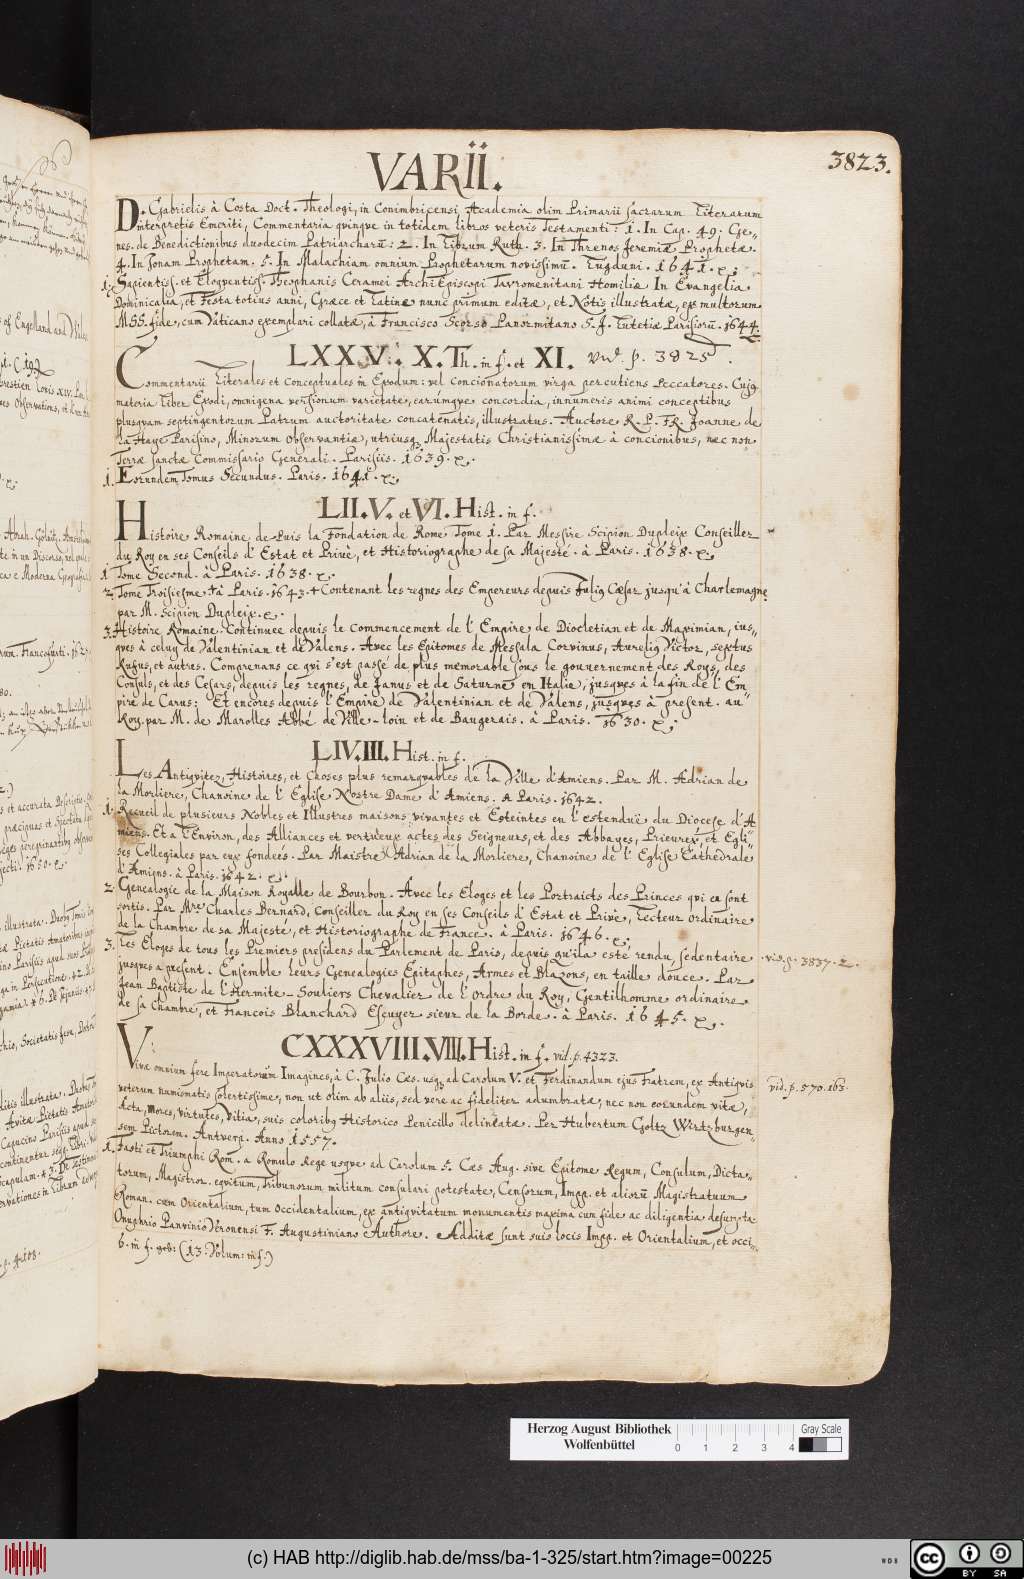 VARII.
3823.
D. Gabrielis à Costa Doct. Theologi, in Conimbricensi Academia olim Primarii sacrarum Literarum
interpretis Emeriti, Commentaria qvinqve in totidem libros veteris Testamenti: 1. In Cap. 49. Ge„
nes. de Benedictionibus duodecim Patriarcharũ: 2. In Librum Ruth. 3. In Threnos Jeremiæ Prophetæ.
4. In Jonam Prophetam. 5. In Malachiam omnium Prophetarum novissimũ. Lugduni. 1641. p.
1. Sapientiss. et Eloqventiss. Theophanis Ceramei ArchiEpiscopi Tavromenitani Homiliæ In Evangelia
Dominicalia, et Festa totius anni, Græce et Latinæ nunc primum editæ, et Nôtis illustratæ, ex multorum
MSS. fide, cum Vaticano exemplari collatæ, à Francisco Scorso Panormitano S. J. Lutetiæ Parisiorũ. 1644.
LXXV. X. Th. in f. et XI. vid. p. 3825.
Commentarii Literales et conceptuales in Exodum: vel concionatorum virga percutiens Peccatores. Cujq
materia Liber Exodi, omnigena versionum varietate, earúmqve concordia, innumeris animi conceptibus
plusqvam septingentorum Patrum auctoritate concatenatis, illustratus. Auctore R. P. FR. Joanne de
la Haye Parisino, Minorum observantiæ, utriusq Majestatis Christianissimæ à concionibus, nec non
Terræ sanctæ Commissario Generali. Parisiis. 1639. p.
1. Eorundem Tomus Secundus. Paris. 1641. p.
LII. V. et VI. Hist. in f.
Histoire Romaine depuis la Fondation de Rome Tome 1. Par Messire Scipion Dupleix Conseiller
du Roy en ses Conseils d'Estat et Privé, et Historiographe de sa Majesté. à Paris. 1638. p.
1. Tome Second. à Paris. 1638. p.
2. Tome Troisiesme + à Paris. 1643. + Contenant les regnes des Empereurs depuis Juliq Cæsar jusqu'à Charlemagne
par M. Scipion Dupleix. p.
3. Histoire Romaine. Continuee depuis le commencement de l'Empire de Diocletian et de Maximian, ius„
qves à celuy de Valentinian et de Valens. Avec les Epitomes de Messala Corvinus, Aureliq Victor, Sextus
Rufus, et autres. Comprenans ce qvi s'est passé de plus memorable sous le gouvernement des Roys, des
Consuls, et des Cesars, depuis les regnes, de Janus et de Saturne en Italie, jusqves à la fin de l'Em„
pire de Carus: Et encores depuis l'Empire de Valentinian et de Valens, jusqves à present. au
Roy. par M. de Marolles Abbé de Ville-loin et de Baugerais. à Paris. 1630. p.
LIV. III. Hist. in f.
Les Antiqvitez, Histoires, et Choses plus remarqvables de la Ville d'Amiens. Par M. Adrian de
la Morliere, Chanoine de l'Eglise Nostre Dame d'Amiens. A Paris. 1642.
1. Recueil de plusieurs Nobles et Illustres maisons vivantes et Esteintes en l'estenduë du Diocese d'A„
miens. Et a l'Environ, des Alliances et vertueux actes des Seigneurs, et des Abbayes, Prieurés, et Egli„
ses Collegiales par eux fondeés. Par Maistre Adrian de la Morliere, Chanoine de l'Eglise Cathedrale
d'Amiens. à Paris. 1642. p.
2. Genealogie de la Maison Royalle de Bourbon. Avec les Eloges et les Portraicts des Princes qvi en sont
sortis. Par Mre Charles Bernard, Conseiller du Roy en ses Conseils d'Estat et Privé, Lecteur ordinaire
de la Chambre de sa Majesté, et Historiographe de France. à Paris. 1646. p.
3. Les Eloges de tous les Premiers presidens du Parlement de Paris, depuis qu'il a esté rendu sedentaire
jusqves a present. Ensemble leurs Genealogies Epitaphes, Armes et Blazons, en taille douce. Par
Jean Baptiste de l'Hermite-Souliers Chevalier de l'Ordre du Roy, Gentilhomme ordinaire
de sa Chambre, et Francois Blanchard Escuyer sieur de la Borde. à Paris. 1645. p.
vid. p. 3837. 2.
CXXXVIII. VIII. Hist. in f. vid. p. 4323.
Vivæ omnium fere Imperatorum Imagines, à C. Julio Cæs. usq ad Carolum V. et Ferdinandum ejus Fratrem, ex Antiqvis
veterum numismatis solertissime, non ut olim ab aliis, sed vere ac fideliter adumbratæ, nec non eorundem vitæ,
Acta, mores, virtutes, vitia, suis coloribq Historico Penicillo delineatæ. Per Hubertum Goltz Wirtzburgen„
sem Pictorem. Antverp. Anno 1557.
vid. p. 570. 163.
1. Fasti et Triumphi Rom. a Romulo Rege usqve ad Carolum 5. Cæs Aug. sive Epitome Regum, Consulum, Dicta„
torum, Magistror. eqvitum, Tribunorum militum consulari potestate, Censorum, Impp. et aliorũ Magistratuum
Roman. cum Orientalium, tum Occidentalium, ex antiqvitatum monumentis maxima cum fide ac diligentia desumpta.
Onuphrio Panvinio Veronensi F. Augustiniano Authore. Additæ sunt suis locis Impp. et Orientalium, et occi„
6. in f. geb: (13. Volum: in f.)
Herzog August Bibliothek
Wolfenbüttel
0 1 2 3 4
Gray Scale
(c) HAB http://diglib.hab.de/mss/ba-1-325/start.htm?image=00225
WDB
cc
BY SA